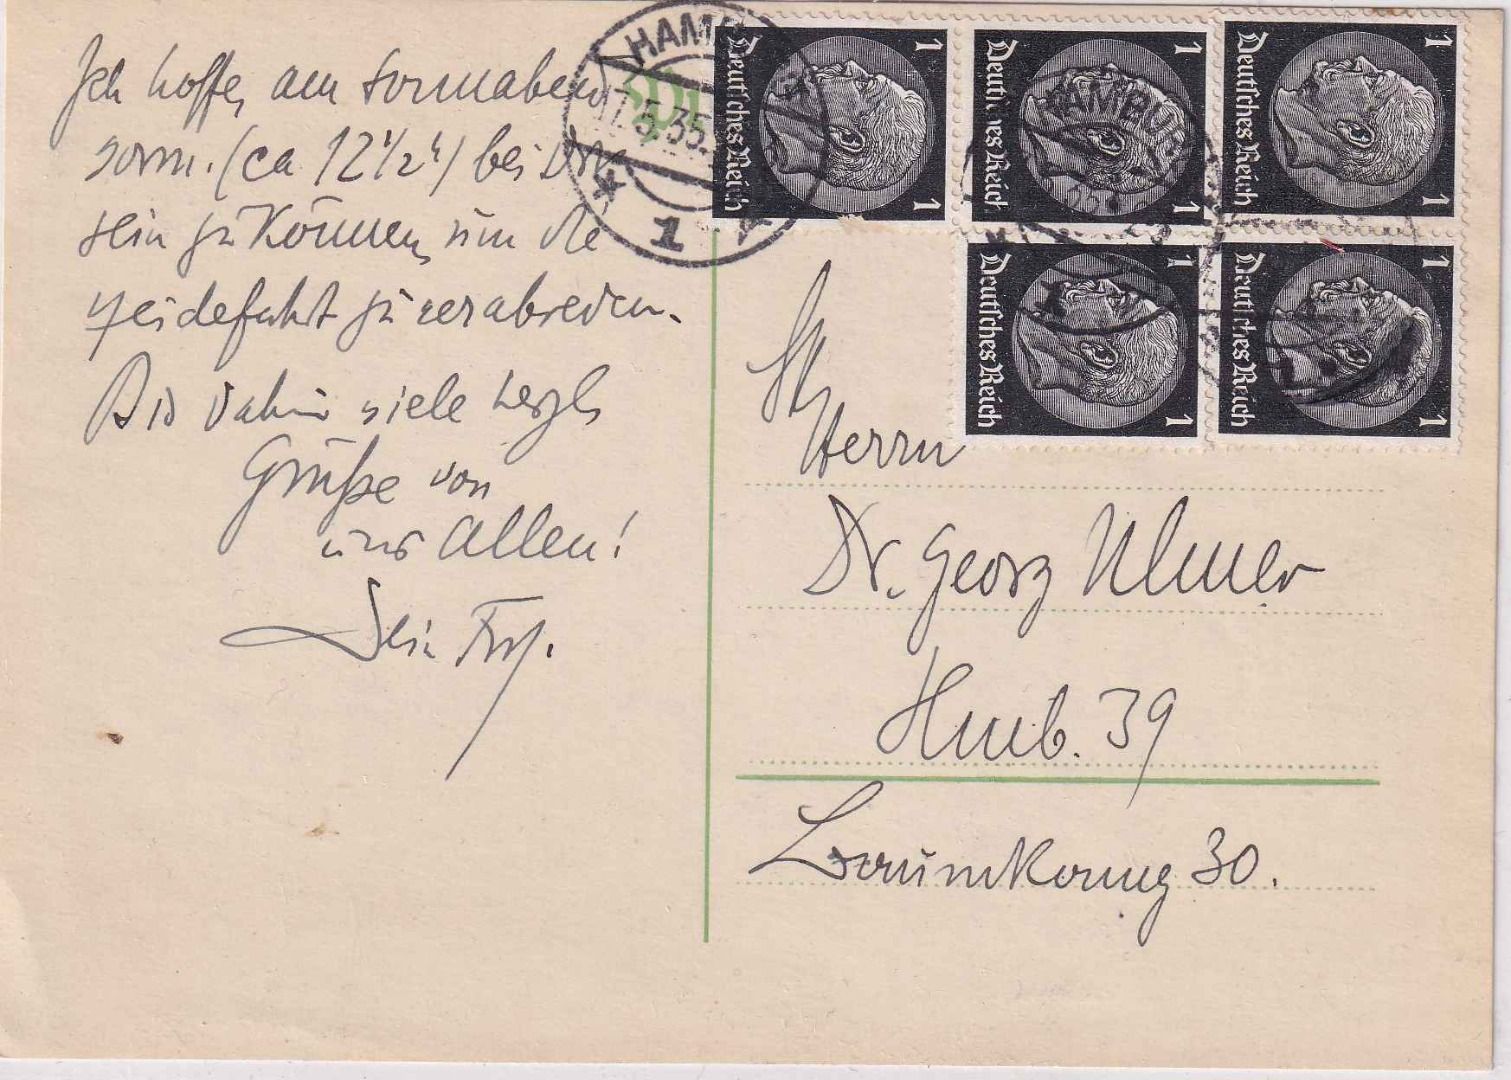 Ich hoffe, am Sonnabend
vorm. (ca 12½ h) bei Dir
sein zu können, um die
Heidefahrt zu verabreden.
Bis dahin viele herzl.
Grüße von
uns Allen!
Dein
HAMBURG
5.35.
1
Deutsches Reich
1
1
Deutsches Reich
1
1
HAMBURG
Deutsches Reich
1
1
Deutsches Reich
1
1
Deutsches Reich
1
1
Herrn
Dr. Georg Ulmer
Hmb. 39
Baumkamp 30.